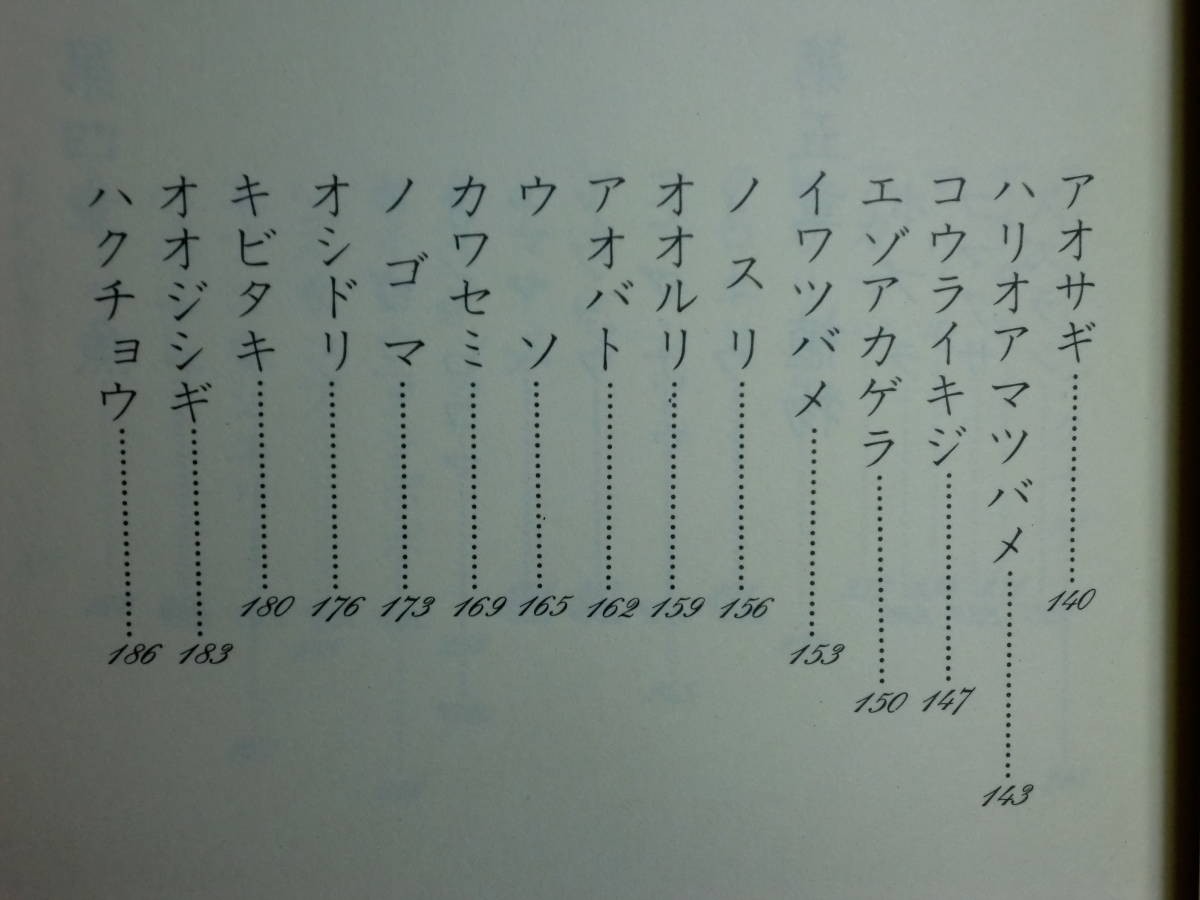 アオサギ……………140
ハリオアマツバメ……………143
コウライキジ……………147
エゾアカゲラ……………150
イワツバメ……………153
ノスリ……………156
オオルリ……………159
アオバト……………162
ウソ……………165
カワセミ……………169
ノゴマ……………173
オシドリ……………176
キビタキ……………180
オオジシギ……………183
ハクチョウ……………186